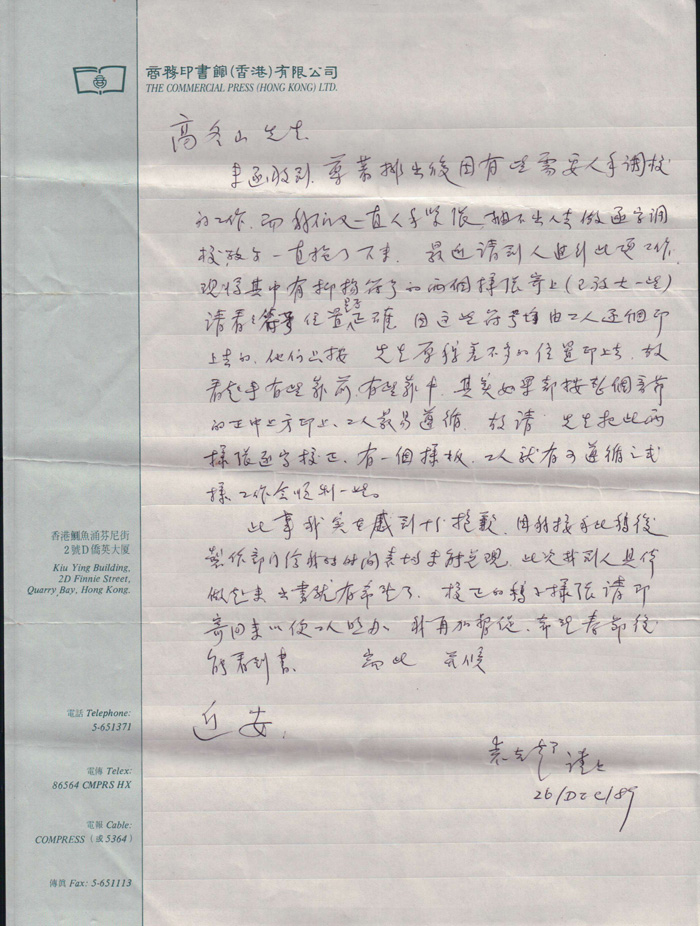 商務印書館(香港)有限公司
THE COMMERCIAL PRESS (HONG KONG) LTD.
高冬山先生
來函收到. 尊著排出後因有些需要人手調校
的工作. 而我們又一直人手緊張 抽不出人去做逐字調
校故乃一直拖了下來. 最近請到人進行此項工作.
現將其中有抑揚符號的兩個樣張寄上(已放大一些)
請看看符號位置是否正確. 因這些符號均由工人逐個印
上去的. 他們只按 先生原稿差不多的位置印上去. 故
看起來有些靠前. 有些靠中. 其實如果都按整個音節
的正中上方印上. 工人較易遵循. 故請 先生把此兩
樣張逐字校正. 有一個樣板. 工人就有可遵循之式
樣 工作會順利一些。
此事我實在感到十分抱歉. 因我接手此稿後
製作部門給我的時間表均未能兌現. 此次找到人具體
做起來 出書就有希望了. 校正的稿子樣張請即
寄回來以便工人照办. 我再加督促. 希望春節後
能看到書. 耑此 並候
近安.
謹上
26/Dec/89
香港鰂魚涌芬尼街
2號D僑英大廈
Kiu Ying Building,
2D Finnie Street,
Quarry Bay, Hong Kong.
電話 Telephone:
5-651371
電傳 Telex:
86564 CMPRS HX
電報 Cable:
COMPRESS (或 5364)
傳真 Fax: 5-651113